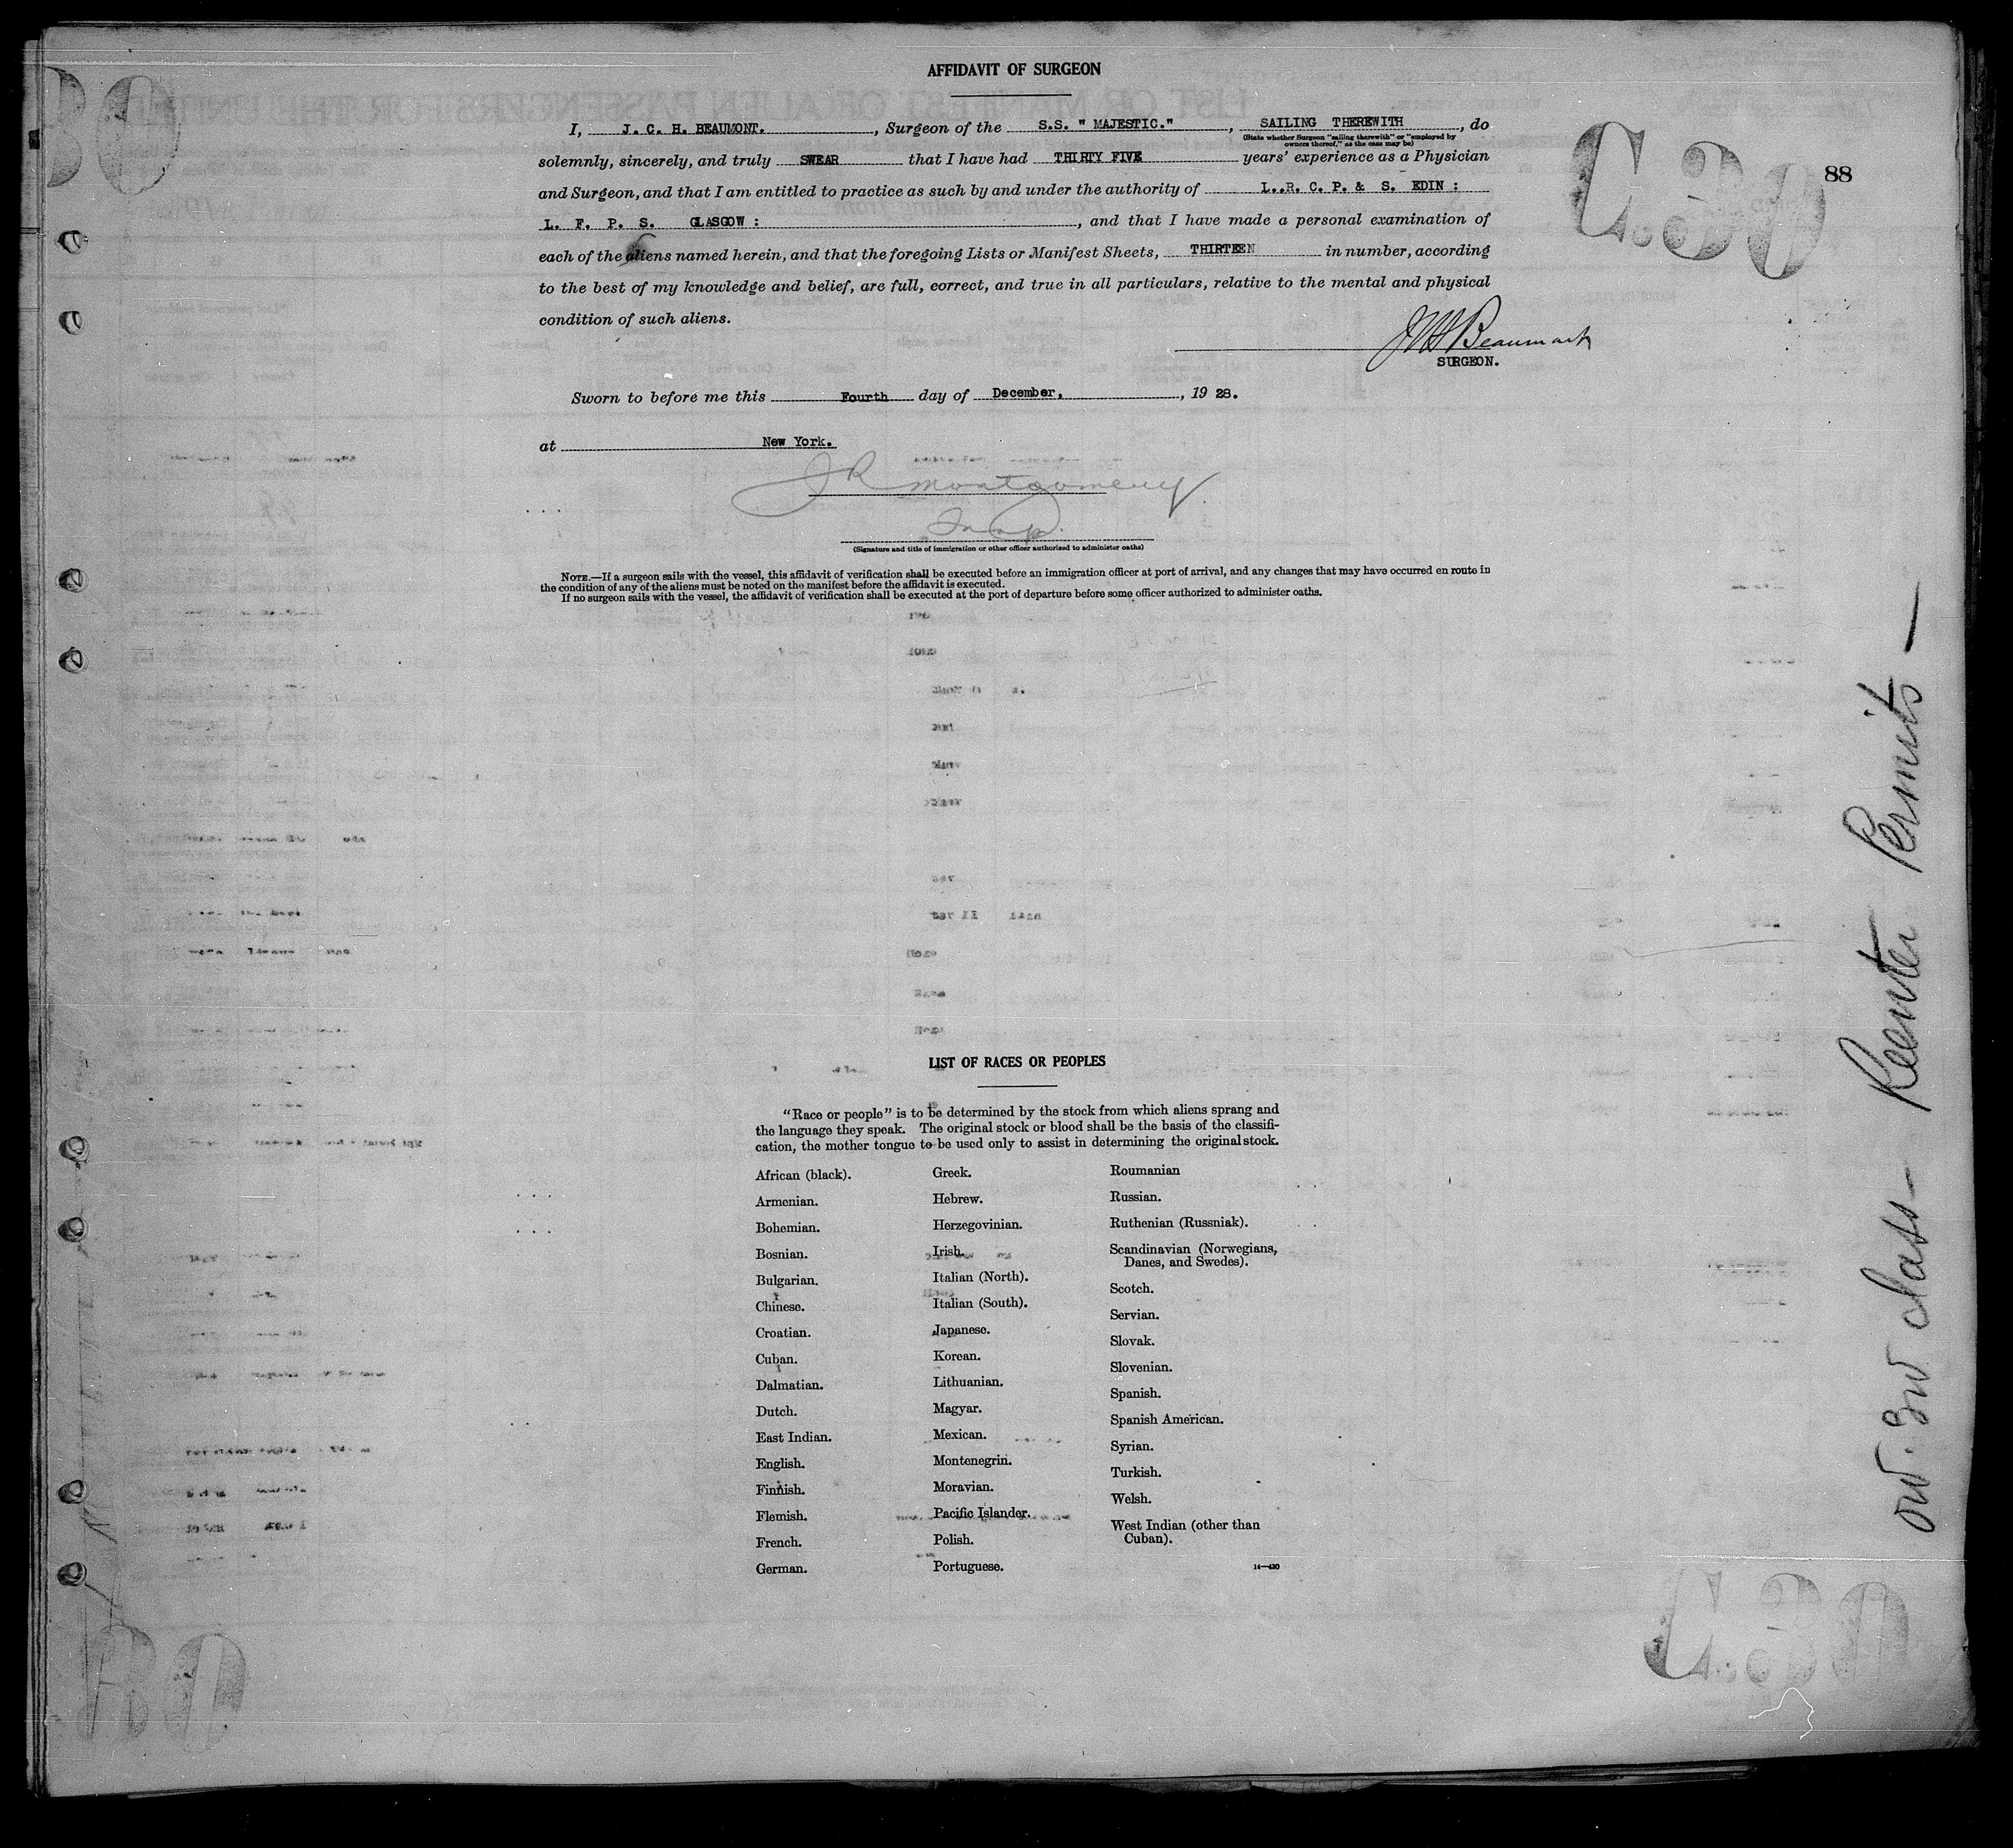 AFFIDAVIT OF SURGEON
I, J. C. H. BEAUMONT. , Surgeon of the S.S. " MAJESTIC." , SAILING THEREWITH , do
(State whether Surgeon "sailing therewith" or "employed by
owners thereof," as the case may be)
solemnly, sincerely, and truly SWEAR that I have had THIRTY FIVE years' experience as a Physician
and Surgeon, and that I am entitled to practice as such by and under the authority of L..R. C. P. & S. EDIN :
L. F. P. S. GLASGOW : , and that I have made a personal examination of
each of the aliens named herein, and that the foregoing Lists or Manifest Sheets, THIRTEEN in number, according
to the best of my knowledge and belief, are full, correct, and true in all particulars, relative to the mental and physical
condition of such aliens.
JCHBeaumont
SURGEON.
Sworn to before me this Fourth day of December, , 19 28.
at New York.
JR Montgomery
Insp.
(Signature and title of immigration or other officer authorized to administer oaths)
NOTE.—If a surgeon sails with the vessel, this affidavit of verification shall be executed before an immigration officer at port of arrival, and any changes that may have occurred en route in
the condition of any of the aliens must be noted on the manifest before the affidavit is executed.
If no surgeon sails with the vessel, the affidavit of verification shall be executed at the port of departure before some officer authorized to administer oaths.
88
C30
LIST OF RACES OR PEOPLES
"Race or people" is to be determined by the stock from which aliens sprang and
the language they speak. The original stock or blood shall be the basis of the classifi-
cation, the mother tongue to be used only to assist in determining the original stock.
African (black).
Armenian.
Bohemian.
Bosnian.
Bulgarian.
Chinese.
Croatian.
Cuban.
Dalmatian.
Dutch.
East Indian.
English.
Finnish.
Flemish.
French.
German.
Greek.
Hebrew.
Herzegovinian.
Irish.
Italian (North).
Italian (South).
Japanese.
Korean.
Lithuanian.
Magyar.
Mexican.
Montenegrin.
Moravian.
Pacific Islander.
Polish.
Portuguese.
Roumanian
Russian.
Ruthenian (Russniak).
Scandinavian (Norwegians,
Danes, and Swedes).
Scotch.
Servian.
Slovak.
Slovenian.
Spanish.
Spanish American.
Syrian.
Turkish.
Welsh.
West Indian (other than
Cuban).
14—430
3rd Class — Reenter Permits —
C30
30
30